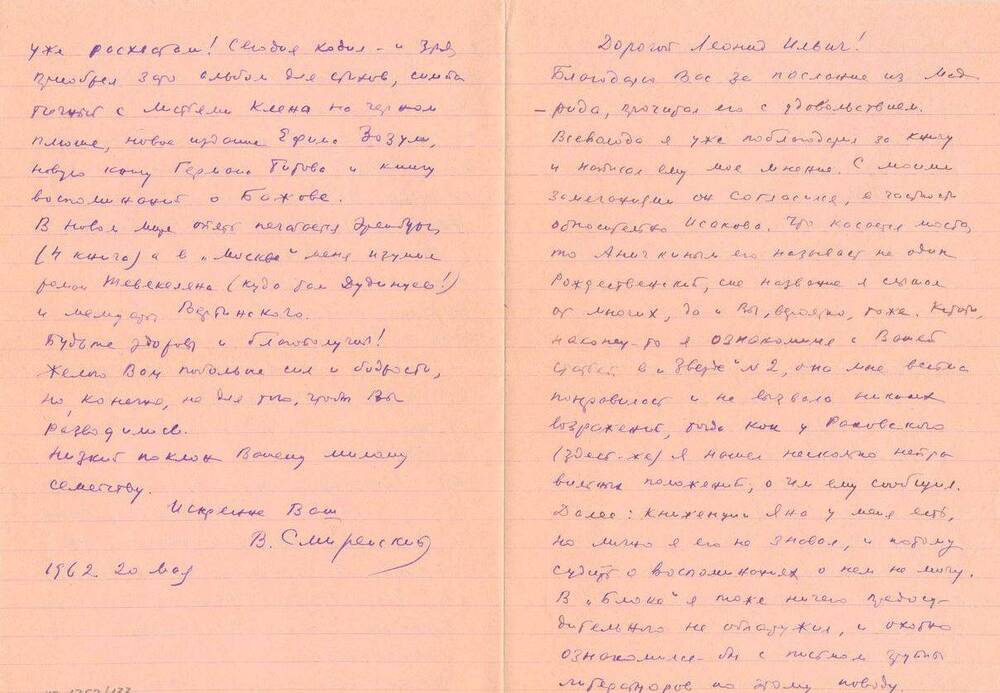 Дорогой Леонид Ильич!
Благодарю Вас за послание из Мад-
рида, прочитал его с удовольствием.
Всеволода я уже поблагодарил за книгу
и написал ему мое мнение. С моими
замечаниями он согласился, в частности
относительно Исакова. Что касается моста,
то Аничкиным его называет не один
Рождественский, сие название я слышал
от многих, да и Вы, вероятно, тоже. Кстати,
наконец-то я ознакомился с Вашей
статьей в "Звезде" №2, она мне весьма
понравилась и не вызвала никаких
возражений, тогда как у Раковского
(здесь-же) я нашел несколько непра
вильных положений, о чем ему сообщил.
Далее: Книженции Яна у меня есть,
но лично я его не знавал, и потому
судить о воспоминаниях о нем не могу.
В "Блоке" я тоже ничего предосу-
дительного не обнаружил, и охотно
ознакомился-бы с письмом группы
литераторов по этому поводу.
уже расхватали! Сегодня ходил - и зря,
приобрел зато альбом для стихов, симпа
тичный с листьями клена на черном
плюше, новое издание Ефима Зозули,
новую книгу Германа Титова и книгу
воспоминаний о Бажове.
В Новом мире опять печатается Эренбург
(4 книга) а в "Москве" меня изумил
роман Тевекеляна (куда там Дудинцев!)
и мемуары Вертинского.
Будьте здоровы и благополучны!
Желаю Вам побольше сил и бодрости,
но, конечно, не для того, чтобы Вы
разводились.
Низкий поклон Вашему милому
семейству.
Искренне Ваш
В. Смиренский
1962. 20 мая